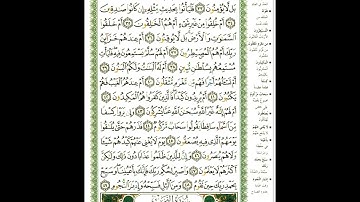 بَل لَّا يُؤْمِنُونَ ٣٣ فَلْيَأْتُوا۟ بِحَدِيثٍ مِّثْلِهِۦٓ إِن كَانُوا۟ صَٰدِقِينَ ٣٤
أَمْ خُلِقُوا۟ مِنْ غَيْرِ شَىْءٍ أَمْ هُمُ ٱلْخَٰلِقُونَ ٣٥ أَمْ خَلَقُوا۟
ٱلسَّمَٰوَٰتِ وَٱلْأَرْضَ بَل لَّا يُوقِنُونَ ٣٦ أَمْ عِندَهُمْ خَزَآئِنُ
رَبِّكَ أَمْ هُمُ ٱلْمُصَۣيْطِرُونَ ٣٧ أَمْ لَهُمْ سُلَّمٌ يَسْتَمِعُونَ فِيهِ فَلْيَأْتِ
مُسْتَمِعُهُم بِسُلْطَٰنٍ مُّبِينٍ ٣٨ أَمْ لَهُ ٱلْبَنَٰتُ وَلَكُمُ ٱلْبَنُونَ ٣٩
أَمْ تَسْـَٔلُهُمْ أَجْرًا فَهُم مِّن مَّغْرَمٍ مُّثْقَلُونَ ٤٠ أَمْ عِندَهُمُ ٱلْغَيْبُ فَهُمْ
يَكْتُبُونَ ٤١ أَمْ يُرِيدُونَ كَيْدًا فَٱلَّذِينَ كَفَرُوا۟ هُمُ ٱلْمَكِيدُونَ ٤٢
أَمْ لَهُمْ إِلَٰهٌ غَيْرُ ٱللَّهِ سُبْحَٰنَ ٱللَّهِ عَمَّا يُشْرِكُونَ ٤٣ وَإِن يَرَوْا۟ كِسْفًا
مِّنَ ٱلسَّمَآءِ سَاقِطًا يَقُولُوا۟ سَحَابٌ مَّرْكُومٌ ٤٤ فَذَرْهُمْ حَتَّىٰ يُلَٰقُوا۟
يَوْمَهُمُ ٱلَّذِى فِيهِ يُصْعَقُونَ ٤٥ يَوْمَ لَا يُغْنِى عَنْهُمْ كَيْدُهُمْ شَيْـًٔا
وَلَا هُمْ يُنصَرُونَ ٤٦ وَإِنَّ لِلَّذِينَ ظَلَمُوا۟ عَذَابًا دُونَ ذَٰلِكَ وَلَٰكِنَّ
أَكْثَرَهُمْ لَا يَعْلَمُونَ ٤٧ وَٱصْبِرْ لِحُكْمِ رَبِّكَ فَإِنَّكَ بِأَعْيُنِنَا وَسَبِّحْ
بِحَمْدِ رَبِّكَ حِينَ تَقُومُ ٤٨ وَمِنَ ٱلَّيْلِ فَسَبِّحْهُ وَإِدْبَٰرَ ٱلنُّجُومِ ٤٩